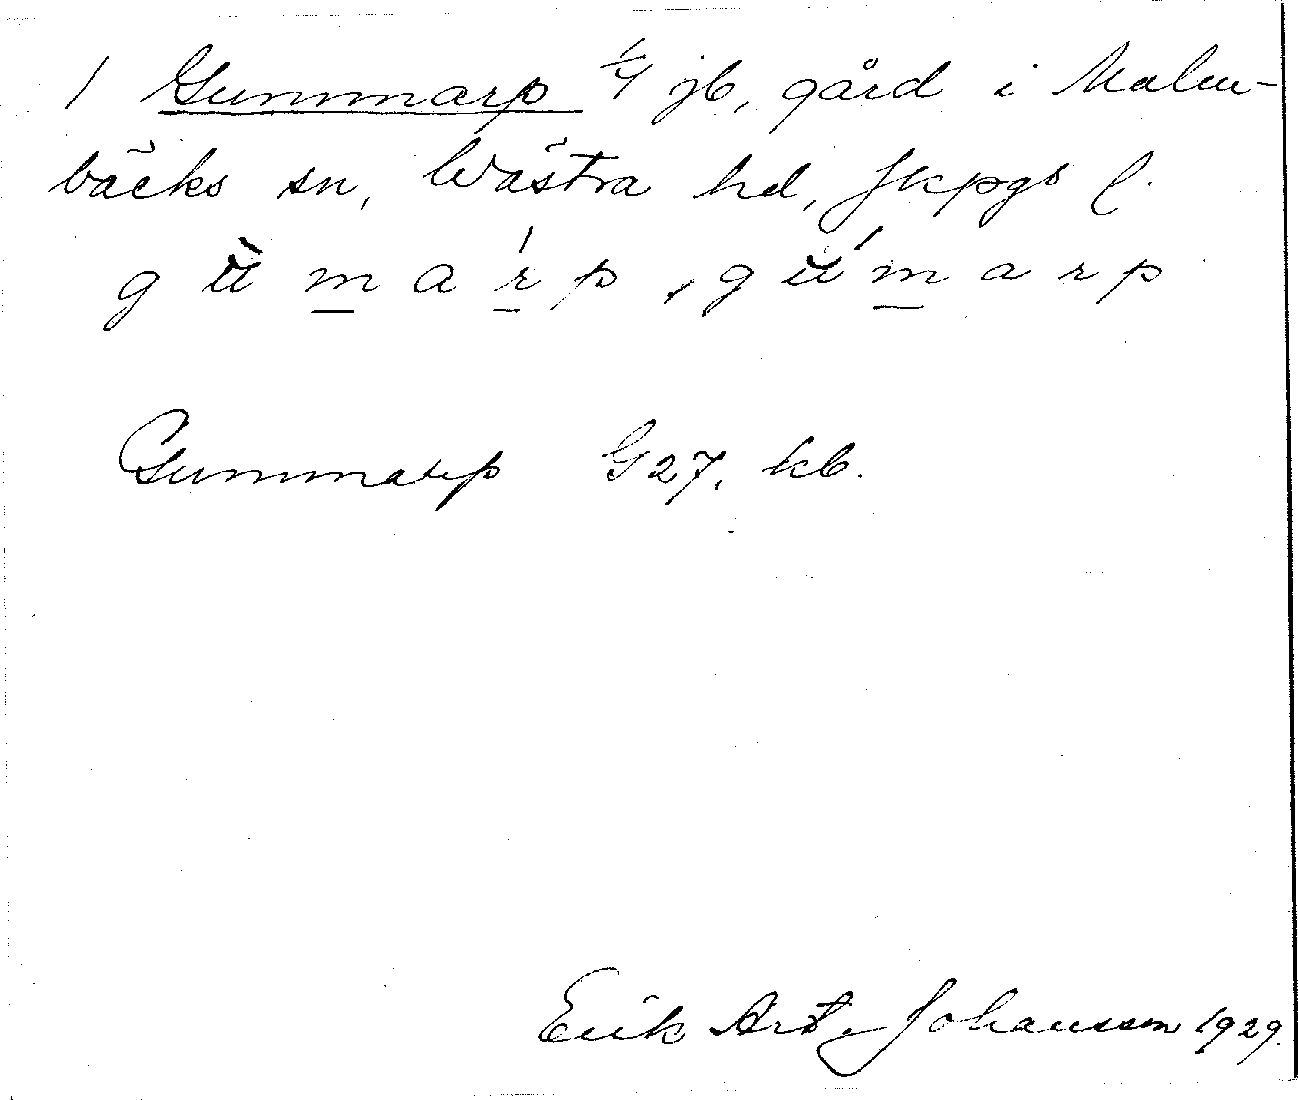 1 Gummarp 1/4 jb, gård i Malm-
bäcks sn, Wästra hd, Jkpgs l.
g ù m a ŕ p, g ú m a r p
Gummarp G 27, kb.
Erik Arv. Johansson 1929.